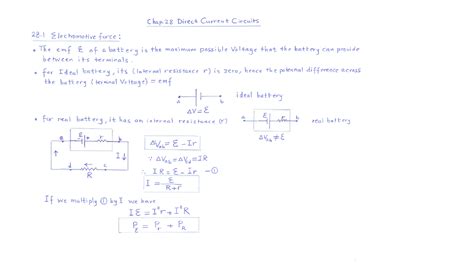 Chap.28 Direct Current Circuits
28.1 Electromotive force:
• The emf ℰ of a battery is the maximum possible Voltage that the battery can provide
between its terminals.
• For Ideal battery, its (internal resistance r) is zero, hence the potential difference across
the battery (terminal Voltage) = emf
ideal battery
ΔV = ℰ
• For real battery, it has an internal resistance (r)
real battery
ℰ r
I I
R
ΔV = ℰ - Ir
= IR
∴ IR = ℰ - Ir —①
I = ℰ / R+r
If we multiply ① by I we have
Iℰ = I²r + I²R
P_ℰ = P_r + P_R